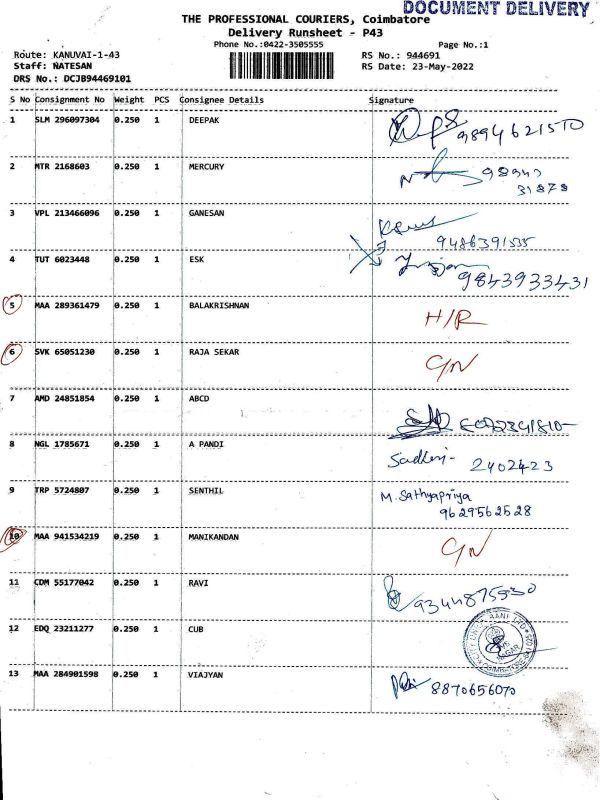 DOCUMENT DELIVERY
THE PROFESSIONAL COURIERS, Coimbatore
Delivery Runsheet - P43
Phone No.:0422-3505555 Page No.:1
Route: KANUVAI-1-43 RS No.: 944691
Staff: NATESAN RS Date: 23-May-2022
DRS No.: DCJB94469101
S No Consignment No Weight PCS Consignee Details Signature
1 SLM 296097304 0.250 1 DEEPAK
2 MTR 2168603 0.250 1 MERCURY
31878
3 VPL 213466096 0.250 1 GANESAN
9486391535
4 TUT 6023448 0.250 1 ESK
9843933431
5 MAA 289361479 0.250 1 BALAKRISHNAN H/R
6 SVK 65051230 0.250 1 RAJA SEKAR
7 AMD 24851854 0.250 1 ABCD
8 NGL 1785671 0.250 1 A PANDI 2402423
9 TRP 5724807 0.250 1 SENTHIL M. Sathyapriya
9629562528
10 MAA 941534219 0.250 1 MANIKANDAN
11 CDM 55177042 0.250 1 RAVI
12 EDQ 23211277 0.250 1 CUB
13 MAA 284901598 0.250 1 VIAJYAN 8870656070